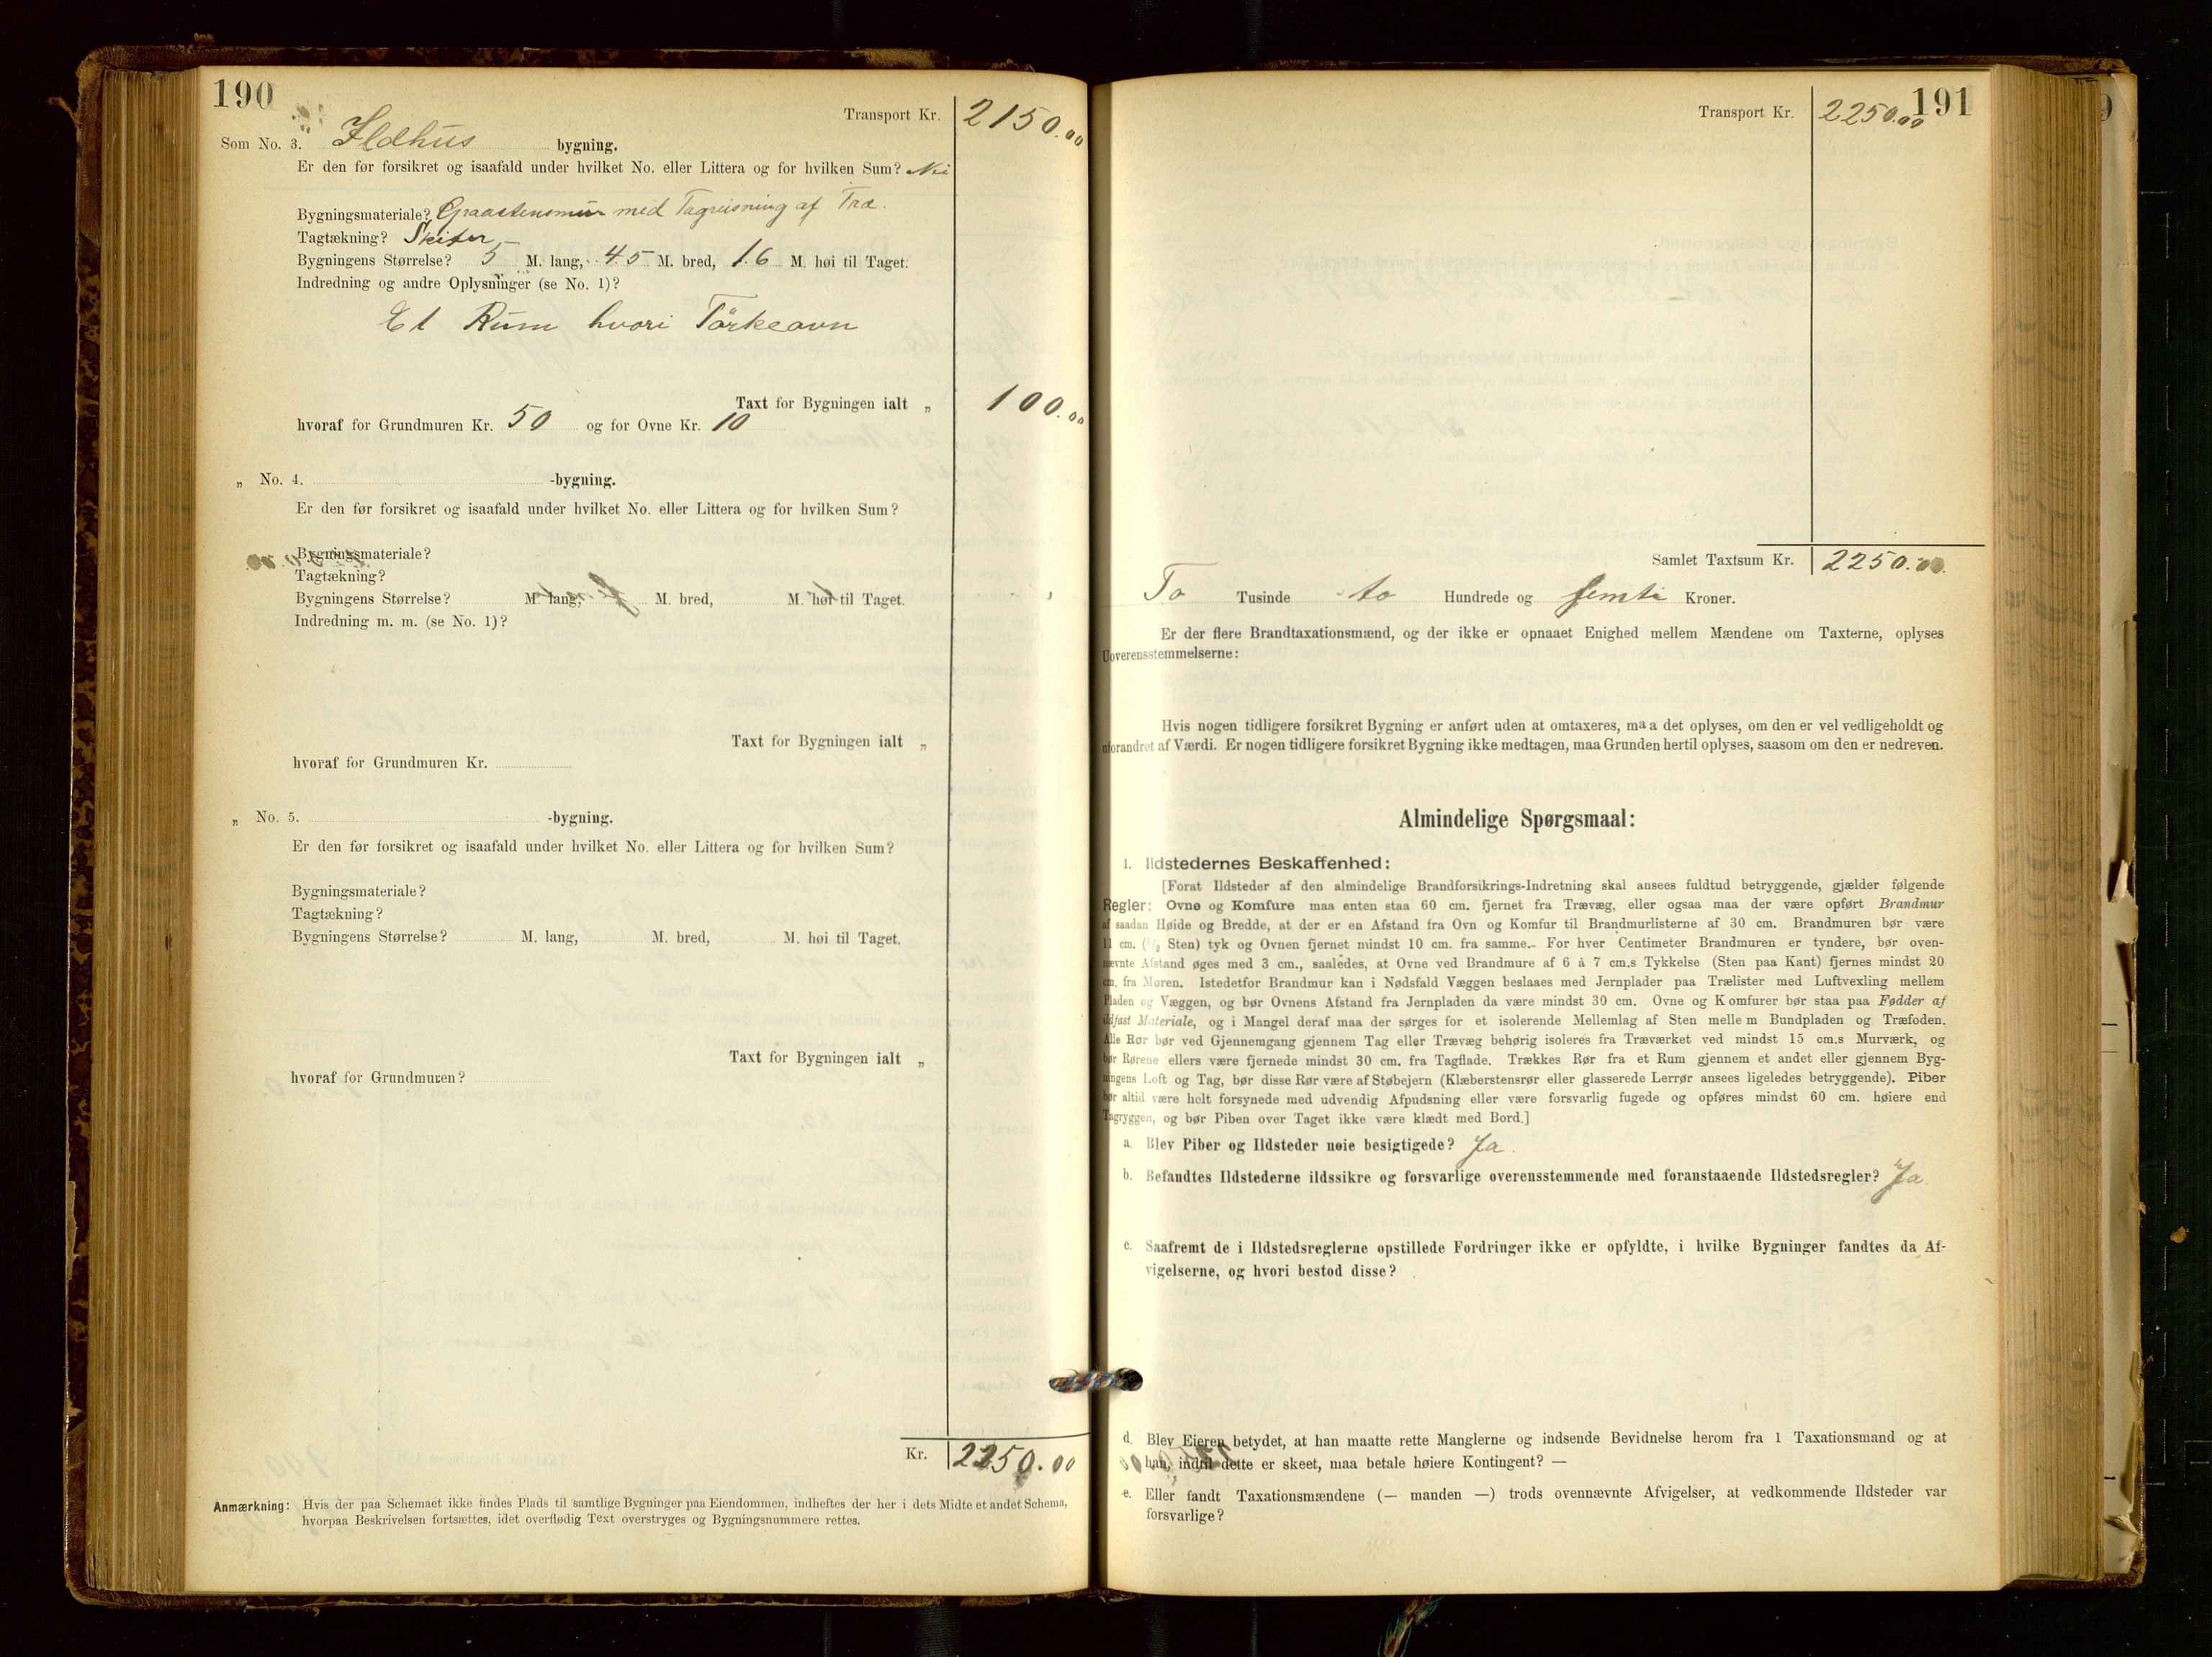 190
Transport Kr. 2150.00
Som No. 3. Ildhus bygning.
Er den før forsikret og isaafald under hvilket No. eller Littera og for hvilken Sum? Nei
Bygningsmateriale? Graastensmur med Tagreisning af Træ.
Tagtækning? Skifer
Bygningens Størrelse? 5 M. lang, 4.5 M. bred, 1.6 M. høi til Taget.
Indredning og andre Oplysninger (se No. 1)?
Et Rum hvori Tørkeovn
Taxt for Bygningen ialt „ 100.00
hvoraf for Grundmuren Kr. 50 og for Ovne Kr. 10
„ No. 4. -bygning.
Er den før forsikret og isaafald under hvilket No. eller Littera og for hvilken Sum?
Bygningsmateriale?
Tagtækning?
Bygningens Størrelse? M. lang, M. bred, M. høi til Taget.
Indredning m. m. (se No. 1)?
Taxt for Bygningen ialt „
hvoraf for Grundmuren Kr.
„ No. 5. -bygning.
Er den før forsikret og isaafald under hvilket No. eller Littera og for hvilken Sum?
Bygningsmateriale?
Tagtækning?
Bygningens Størrelse? M. lang, M. bred, M. høi til Taget.
Taxt for Bygningen ialt „
hvoraf for Grundmuren?
Kr. 2250.00
Anmærkning: Hvis der paa Schemaet ikke findes Plads til samtlige Bygninger paa Eiendommen, indheftes der her i dets Midte et andet Schema,
hvorpaa Beskrivelsen fortsættes, idet overflødig Text overstryges og Bygningsnummere rettes.
191
Transport Kr. 2250.00
Samlet Taxtsum Kr. 2250.00.
To Tusinde to Hundrede og femti Kroner.
Er der flere Brandtaxationsmænd, og der ikke er opnaaet Enighed mellem Mændene om Taxterne, oplyses
Uoverensstemmelserne:
Hvis nogen tidligere forsikret Bygning er anført uden at omtaxeres, maa det oplyses, om den er vel vedligeholdt og
uforandret af Værdi. Er nogen tidligere forsikret Bygning ikke medtagen, maa Grunden hertil oplyses, saasom om den er nedreven.
Almindelige Spørgsmaal:
1. Ildstedernes Beskaffenhed:
[Forat Ildsteder af den almindelige Brandforsikrings-Indretning skal ansees fuldtud betryggende, gjælder følgende
Regler: Ovne og Komfure maa enten staa 60 cm. fjernet fra Trævæg, eller ogsaa maa der være opført Brandmur
af saadan Høide og Bredde, at der er en Afstand fra Ovn og Komfur til Brandmurlisterne af 30 cm. Brandmuren bør være
11 cm. (1/2 Sten) tyk og Ovnen fjernet mindst 10 cm. fra samme. For hver Centimeter Brandmuren er tyndere, bør oven-
nævnte Afstand øges med 3 cm., saaledes, at Ovne ved Brandmure af 6 à 7 cm.s Tykkelse (Sten paa Kant) fjernes mindst 20
cm. fra Muren. Istedetfor Brandmur kan i Nødsfald Væggen beslaaes med Jernplader paa Trælister med Luftvexling mellem
Pladen og Væggen, og bør Ovnens Afstand fra Jernpladen da være mindst 30 cm. Ovne og Komfurer bør staa paa Fødder af
ildfast Materiale, og i Mangel deraf maa der sørges for et isolerende Mellemlag af Sten mellem Bundpladen og Træfoden.
Alle Rør bør ved Gjennemgang gjennem Tag eller Trævæg behørig isoleres fra Træværket ved mindst 15 cm.s Murværk, og
bør Rørene ellers være fjernede mindst 30 cm. fra Tagflade. Trækkes Rør fra et Rum gjennem et andet eller gjennem Byg-
ningens Loft og Tag, bør disse Rør være af Støbejern (Klæberstensrør eller glasserede Lerrør ansees ligeledes betryggende). Piber
bør altid være helt forsynede med udvendig Afpudsning eller være forsvarlig fugede og opføres mindst 60 cm. høiere end
Tagryggen, og bør Piben over Taget ikke være klædt med Bord.]
a. Blev Piber og Ildsteder nøie besigtigede? Ja.
b. Befandtes Ildstederne ildssikre og forsvarlige overensstemmende med foranstaaende Ildstedsregler? Ja.
c. Saafremt de i Ildstedsreglerne opstillede Fordringer ikke er opfyldte, i hvilke Bygninger fandtes da Af-
vigelserne, og hvori bestod disse?
d. Blev Eieren betydet, at han maatte rette Manglerne og indsende Bevidnelse herom fra 1 Taxationsmand og at
han, indtil dette er skeet, maa betale høiere Kontingent? —
e. Eller fandt Taxationsmændene (— manden —) trods ovennævnte Afvigelser, at vedkommende Ildsteder var
forsvarlige?